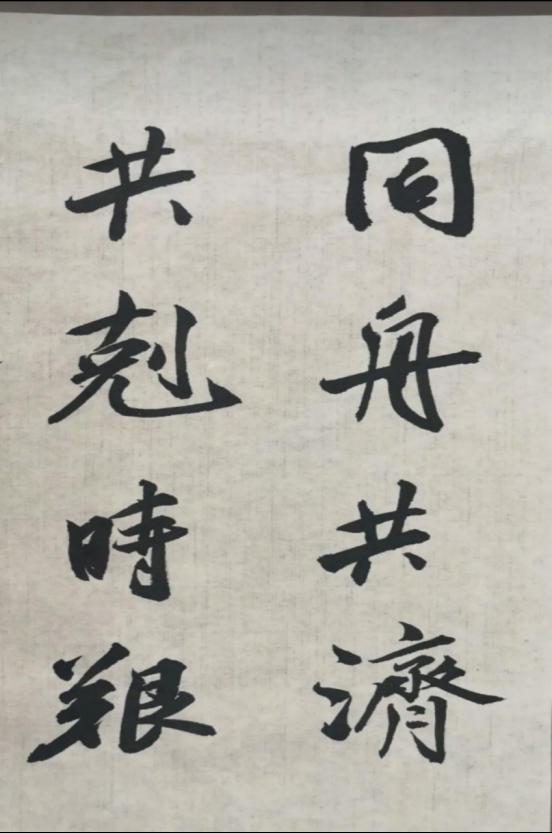 同舟共濟
共剋時艱